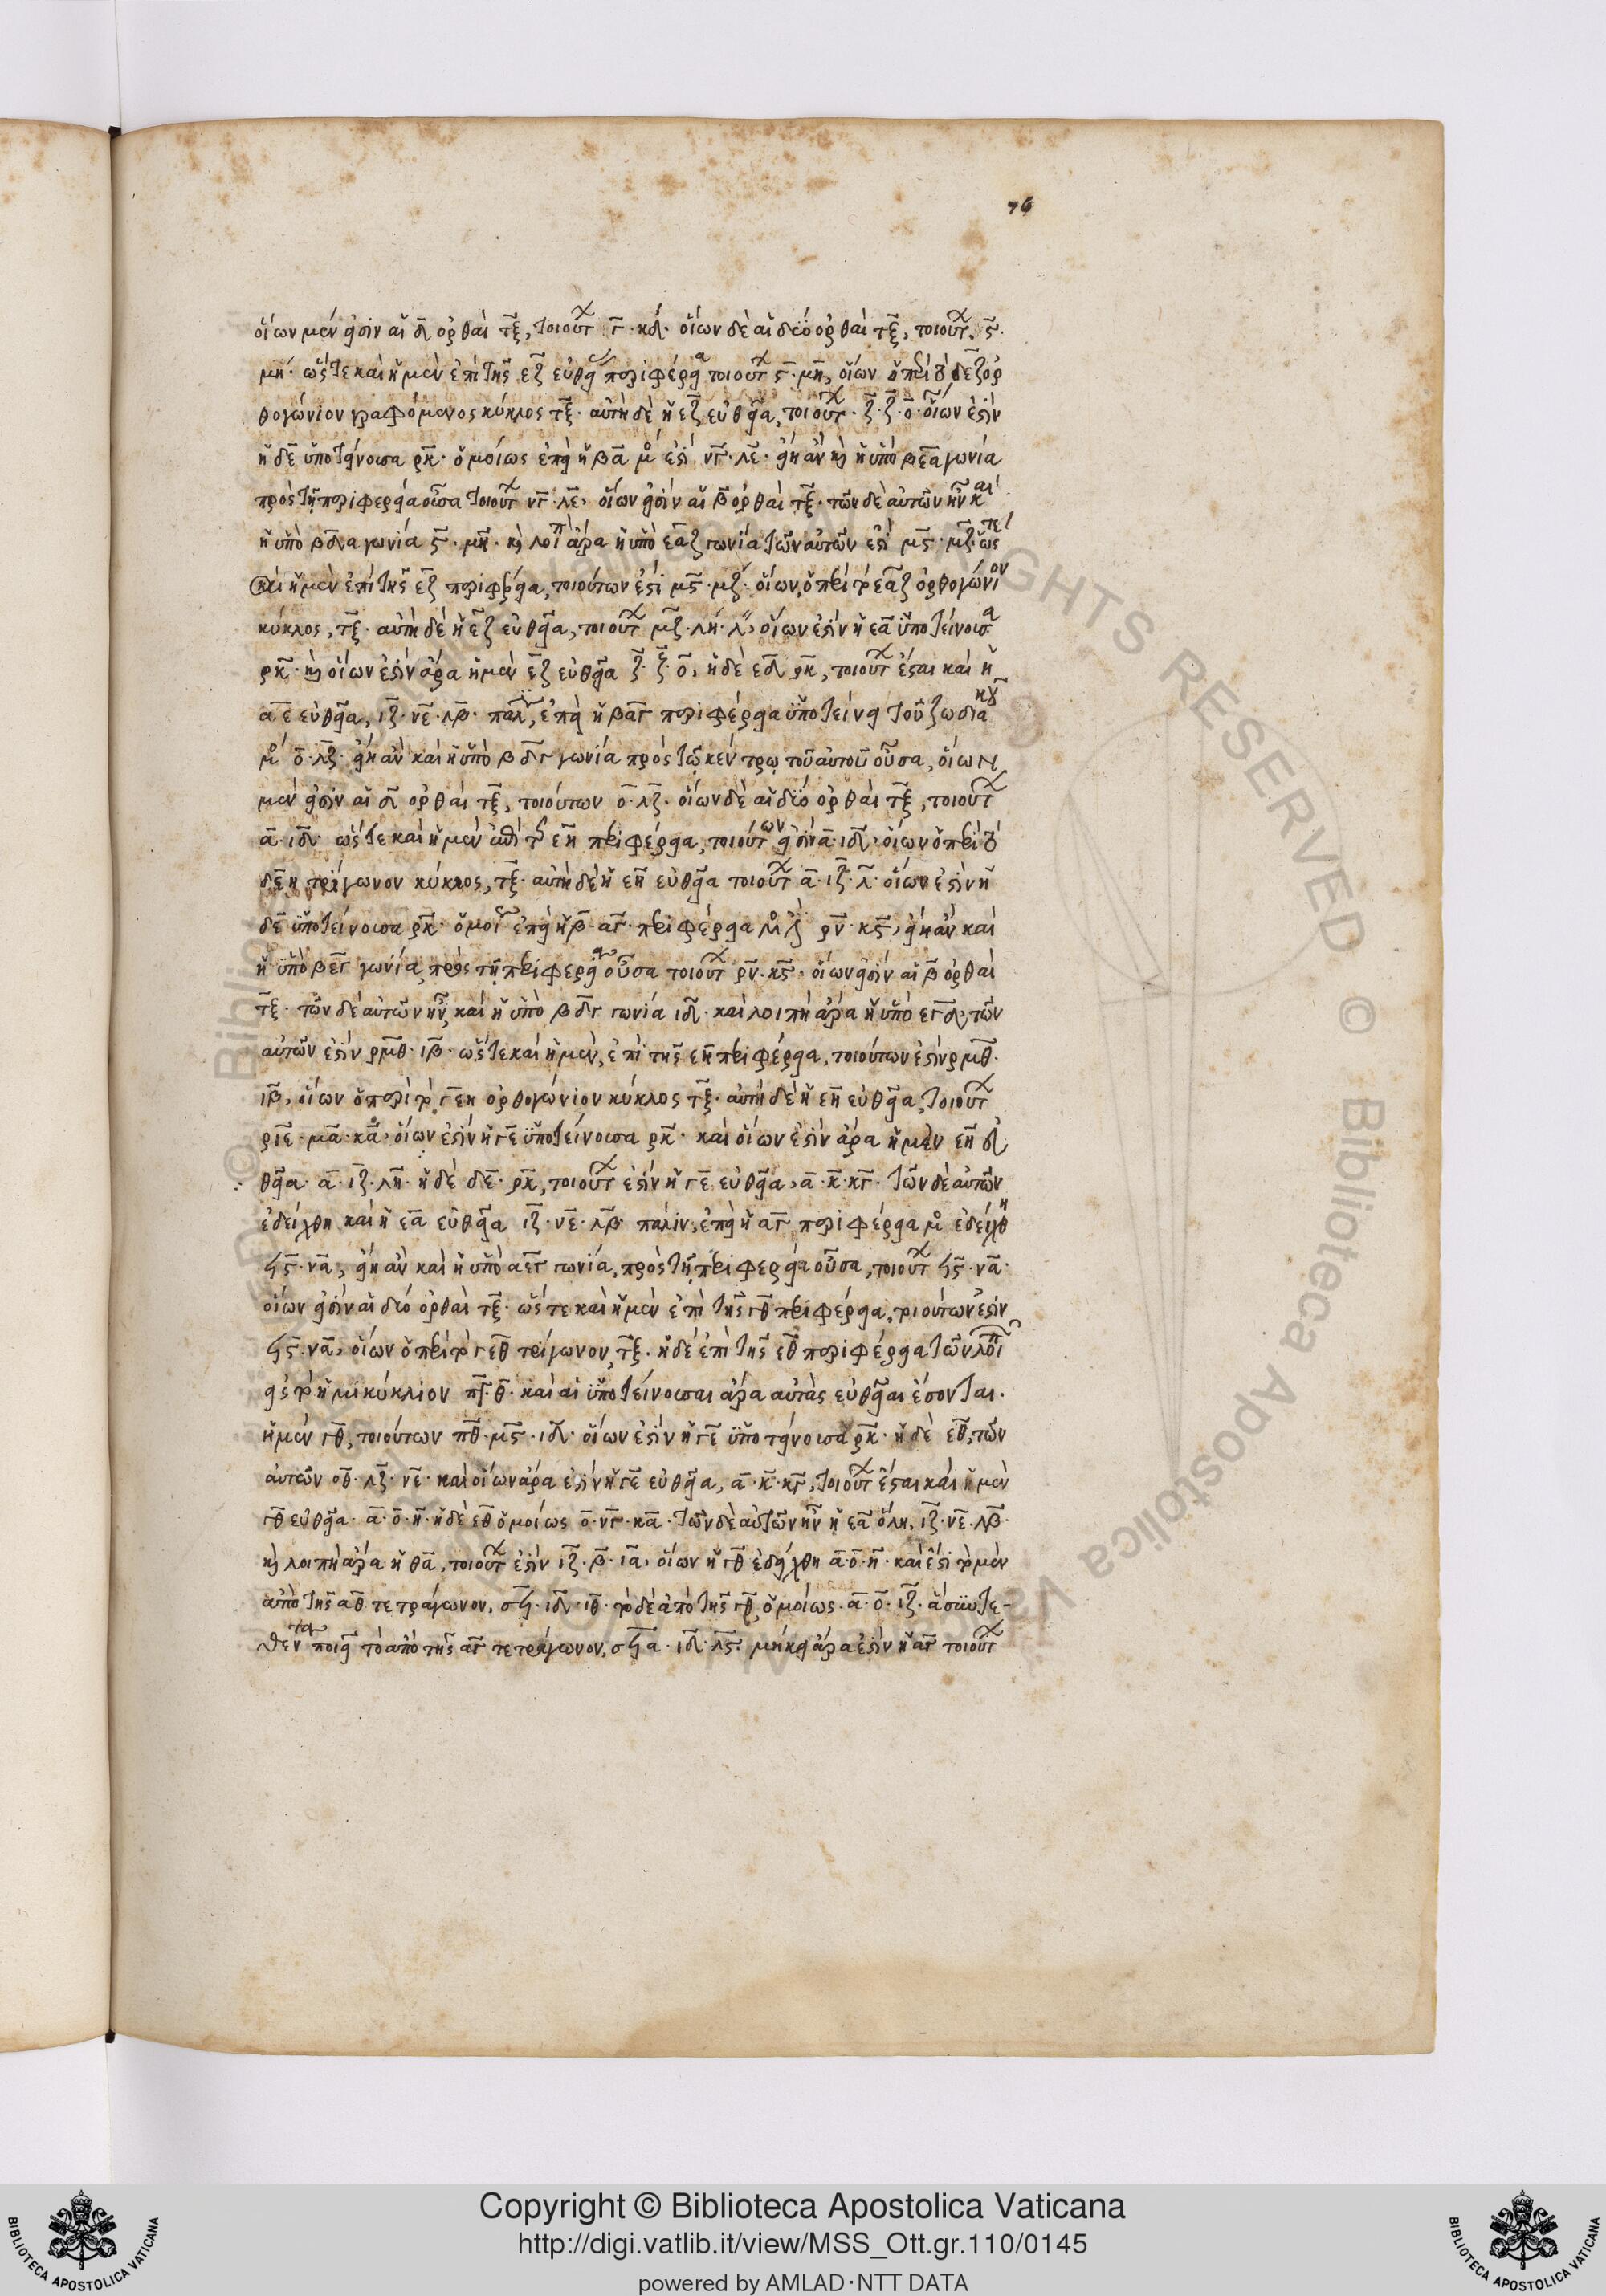 76
οἵων μέν εἰσιν αἱ δ̄ ὀρθαὶ τξ̄, τοιούτ γ̄·κδ̄· οἵων δὲ αἱ δύο ὀρθαὶ τξ̄, τοιούτ, ϛ̄·
μη̄· ὥστε καὶ ἡ μὲν ἐπὶ τῆς εζ εὐθεί περιφέρεια τοιούτ ϛ̄·μη̄, οἵων ὁ περὶ τὸ δεζ ὀρ
θογώνιον γραφόμενος κύκλος τξ̄· αὐτὴ δὲ ἡ εζ εὐθεῖα, τοιούτ· ζ̄·ζ̄·ο̄· οἵων ἐστὶν
ἡ δε ὑποτείνουσα ρκ̄· ὁμοίως ἐπεὶ ἡ βα μο ἐστὶ νγ̄·λε̄· εἴη ἂν κ ἡ ὑπὸ βεα γωνία
πρὸς τῇ περιφερείᾳ οὖσα τοιούτ νγ̄·λε̄, οἵων εἰσὶν αἱ β̄ ὀρθαὶ τξ̄· τῶν δὲ αὐτῶν ἦν καὶ
ἡ ὑπὸ βδα γωνία ϛ̄·μη̄· κ λοιπὴ ἄρα ἡ ὑπὸ εαζ γωνία τῶν αὐτῶν ἐστὶ μϛ̄·μζ̄· ὥστε
καὶ ἡ μὲν ἐπὶ τῆς εζ περιφέρεια, τοιούτων ἐστὶ μϛ̄·μζ̄· οἵων, ὁ περὶ τὸ εαζ ὀρθογώνιον
κύκλος, τξ̄· αὐτὴ δὲ ἡ εζ εὐθεῖα, τοιούτ μζ̄·λη̄·λ̄, οἵων ἐστὶν ἡ εα ὑποτείνουσα
ρκ̄· κ οἵων ἐστὶν ἄρα ἡ μὲν εζ εὐθεῖα ζ̄·ζ̄·ο̄, ἡ δὲ εδ ρκ̄, τοιούτ ἔσται καὶ ἡ
αε εὐθεῖα, ιζ̄·νε̄·λβ̄· πάλιν, ἐπεὶ ἡ βαγ περιφέρεια ὑποτείνει τοῦ ζωδιακοῦ
μο ο̄·λζ̄· εἴη ἂν καὶ ἡ ὑπὸ βδγ γωνία πρὸς τῷ κέντρῳ τοῦ αὐτοῦ οὖσα, οἵων
μέν εἰσιν αἱ δ̄ ὀρθαὶ τξ̄, τοιούτων ο̄·λζ̄· οἵων δὲ αἱ δύο ὀρθαὶ τξ̄, τοιούτ
ᾱ·ιδ̄· ὥστε καὶ ἡ μὲν ἐπὶ τῆς εη περιφέρεια, τοιούτων εἰσὶν ᾱ·ιδ̄· οἵων ὁ περὶ τὸ
δεη τρίγωνον κύκλος, τξ̄· αὐτὴ δὲ ἡ εη εὐθεῖα τοιούτ ᾱ·ιζ̄·λ̄· οἵων ἐστὶν ἡ
δε ὑποτείνουσα ρκ̄· ὁμοί ἐπεὶ ἡ β·αγ· περιφέρεια μο ρν̄·κϛ̄, εἴη ἂν καὶ
ἡ ὑπὸ βεγ γωνία, πρὸς τῇ περιφερείᾳ οὖσα τοιούτ ρν̄·κϛ̄· οἵων εἰσὶν αἱ β̄ ὀρθαὶ
τξ̄· τῶν δὲ αὐτῶν ἦν, καὶ ἡ ὑπὸ βδγ γωνία ιδ̄· καὶ λοιπὴ ἄρα ἡ ὑπὸ εγδ, τῶν
αὐτῶν ἐστὶν ρμθ̄·ιβ̄· ὥστε καὶ ἡ μὲν, ἐπὶ τῆς εη περιφέρεια, τοιούτων ἐστὶν ρμθ̄·
ιβ̄, οἵων ὁ περὶ τὸ γεη ὀρθογώνιον κύκλος τξ̄· αὐτὴ δὲ ἡ εη εὐθεῖα, τοιούτ
ριε̄·μᾱ·κᾱ, οἵων ἐστὶν ἡ γε ὑποτείνουσα ρκ̄· καὶ οἵων ἐστὶν ἄρα ἡ μὲν εη εὐ
θεῖα ᾱ·ιζ̄·λη̄· ἡ δὲ δε ρκ̄, τοιούτ ἐστὶν ἡ γε εὐθεῖα, ᾱ·κ̄·κγ̄· τῶν δὲ αὐτῶν
ἐδείχθη καὶ ἡ εα εὐθεῖα ιζ̄·νε̄·λβ̄· πάλιν, ἐπεὶ ἡ αγ περιφέρεια μο ἐδείχθη
ϟϛ̄·νᾱ, εἴη ἂν καὶ ἡ ὑπὸ αεγ γωνία, πρὸς τῇ περιφερείᾳ οὖσα, τοιούτ ϟϛ̄·νᾱ·
οἵων εἰσὶν αἱ δύο ὀρθαὶ τξ̄· ὥστε καὶ ἡ μὲν ἐπὶ τῆς γθ περιφέρεια, τοιούτων ἐστὶν
ϟϛ̄·νᾱ, οἵων ὁ περὶ τὸ γεθ τρίγωνον, τξ̄· ἡ δὲ ἐπὶ τῆς εθ περιφέρεια τῶν λοιπῶν
εἰς τὸ ἡμικύκλιον πγ̄·θ̄· καὶ αἱ ὑποτείνουσαι ἄρα αὐτὰς εὐθεῖαι ἔσονται·
ἡ μὲν γθ, τοιούτων πθ̄·μϛ̄·ιδ̄· οἵων ἐστὶν ἡ γε ὑποτείνουσα ρκ̄· ἡ δὲ εθ, τῶν
αὐτῶν οθ̄·λζ̄·νε̄· καὶ οἵων ἄρα ἐστὶν ἡ γε εὐθεῖα, ᾱ·κ̄·κγ̄, τοιούτ ἔσται καὶ ἡ μὲν
γθ εὐθεῖα ᾱ·ο̄·η̄· ἡ δὲ εθ ὁμοίως ο̄·νγ̄·κᾱ· τῶν δὲ αὐτῶν ἦν ἡ εα ὅλη, ιζ̄·νε̄·λβ̄·
κ λοιπὴ ἄρα ἡ θα, τοιούτ ἐστὶν ιζ̄·β̄·ιᾱ, οἵων ἡ γθ ἐδείχθη ᾱ·ο̄·η̄· καὶ ἐστὶ τὸ μὲν
ἀπὸ τῆς αθ τετράγωνον, σϟ·ιδ̄·ιθ̄· τὸ δὲ ἀπὸ τῆς γθ, ὁμοίως· ᾱ·ο̄·ιζ̄· ἃ συντε-
θέντα ποιεῖ τὸ ἀπὸ τῆς αγ τετράγωνον, σϟα·ιδ̄·λϛ̄· μήκει ἄρα ἐστὶν ἡ αγ τοιούτ
Copyright © Biblioteca Apostolica Vaticana
http://digi.vatlib.it/view/MSS_Ott.gr.110/0145
powered by AMLAD·NTT DATA
BIBLIOTECA APOSTOLICA VATICANA
BIBLIOTECA APOSTOLICA VATICANA